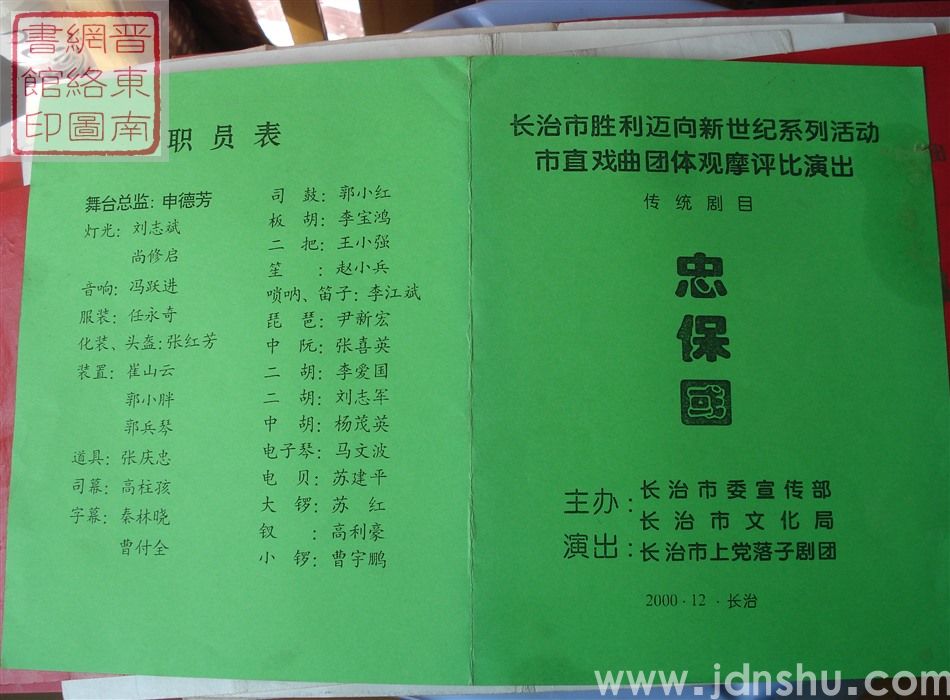 晋东南
網络圖
書館印
职员表
舞台总监：申德芳
灯光：刘志斌
尚修启
音响：冯跃进
服装：任永奇
化装、头盔：张红芳
装置：崔山云
郭小胖
郭兵琴
道具：张庆忠
司幕：高柱孩
字幕：秦林晓
曹付全
司鼓：郭小红
板胡：李宝鸿
二把：王小强
笙：赵小兵
唢呐、笛子：李江斌
琵琶：尹新宏
中阮：张喜英
二胡：李爱国
二胡：刘志军
中胡：杨茂英
电子琴：马文波
电贝：苏建平
大锣：苏红
钗：高利豪
小锣：曹宇鹏
长治市胜利迈向新世纪系列活动
市直戏曲团体观摩评比演出
传统剧目
忠
保
國
主办：长治市委宣传部
长治市文化局
演出：长治市上党落子剧团
2000·12·长治
www.jdnshu.com